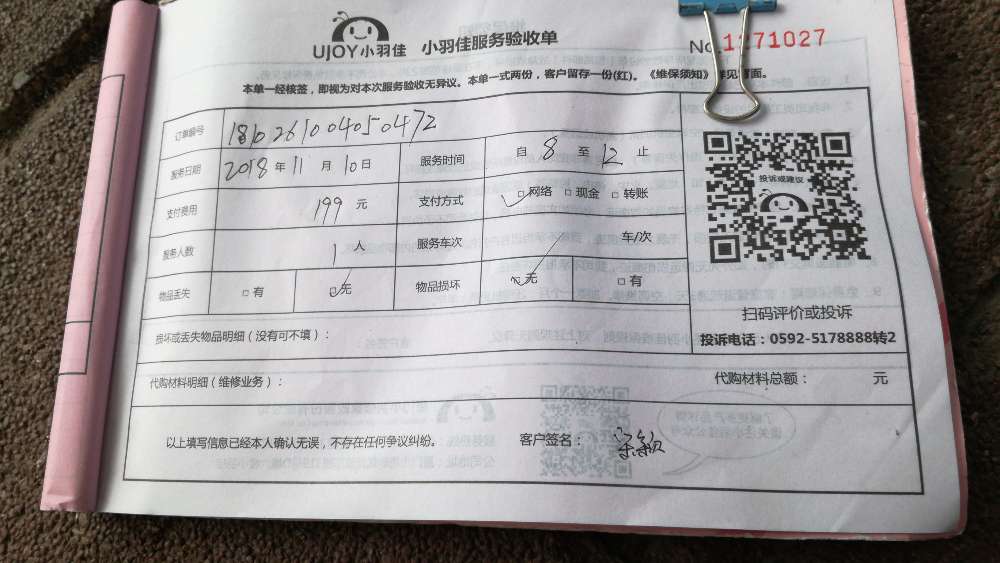 UJOY小羽佳 小羽佳服务验收单 No.1271027
本单一经核签，即视为对本次服务验收无异议。本单一式两份，客户留存一份(红)。《维保须知》详见背面。
订单编号 1810261004050472
服务日期 2018年11月10日 服务时间 自8至12止
支付费用 199元 支付方式 □网络 □现金 □转账
服务人数 1人 服务车次 车/次
物品丢失 □有 □无 物品损坏 □无 □有
投诉或建议
扫码评价或投诉
损坏或丢失物品明细（没有可不填）：
投诉电话：0592-5178888转2
代购材料明细（维修业务）： 代购材料总额： 元
以上填写信息已经本人确认无误，不存在任何争议纠纷。 客户签名：